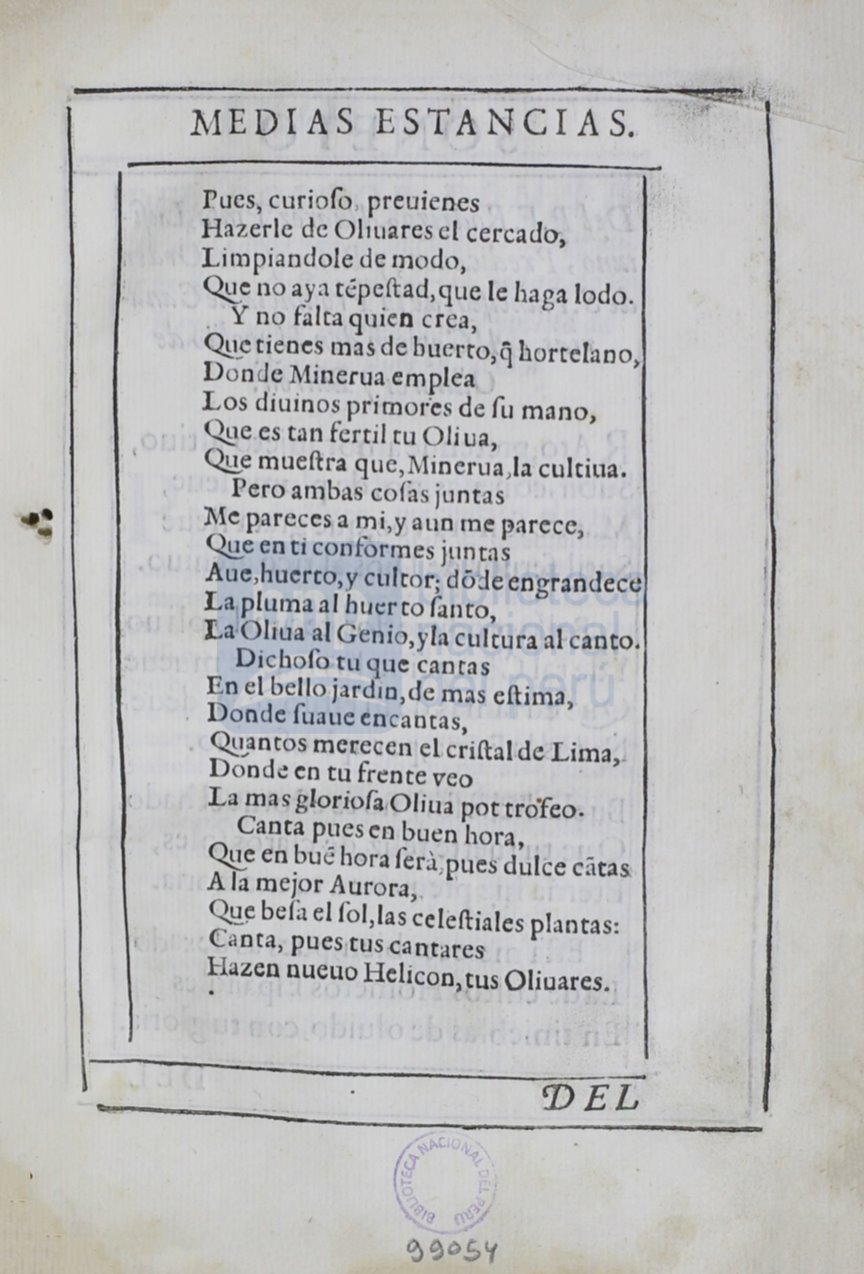 MEDIAS ESTANCIAS.
Pues, curioſo, preuienes
Hazerle de Oliuares el cercado,
Limpiandole de modo,
Que no aya tẽpeſtad, que le haga lodo.
Y no falta quien crea,
Que tienes mas de huerto, q̃ hortelano,
Donde Minerua emplea
Los diuinos primores de ſu mano,
Que es tan fertil tu Oliua,
Que mueſtra que, Minerua, la cultiua.
Pero ambas coſas juntas
Me pareces a mi, y aun me parece,
Que en ti conformes juntas
Aue, huerto, y cultor; dõde engrandece
La pluma al huerto ſanto,
La Oliua al Genio, y la cultura al canto.
Dichoſo tu que cantas
En el bello jardin, de mas eſtima,
Donde ſuaue encantas,
Quantos merecen el criſtal de Lima,
Donde en tu frente veo
La mas glorioſa Oliua pot trofeo.
Canta pues en buen hora,
Que en buẽ hora ſerà, pues dulce cãtas
A la mejor Aurora,
Que beſa el ſol, las celeſtiales plantas:
Canta, pues tus cantares
Hazen nueuo Helicon, tus Oliuares.
DEL
biblioteca
nacional
del perú
BIBLIOTECA NACIONAL DEL PERÚ
99054